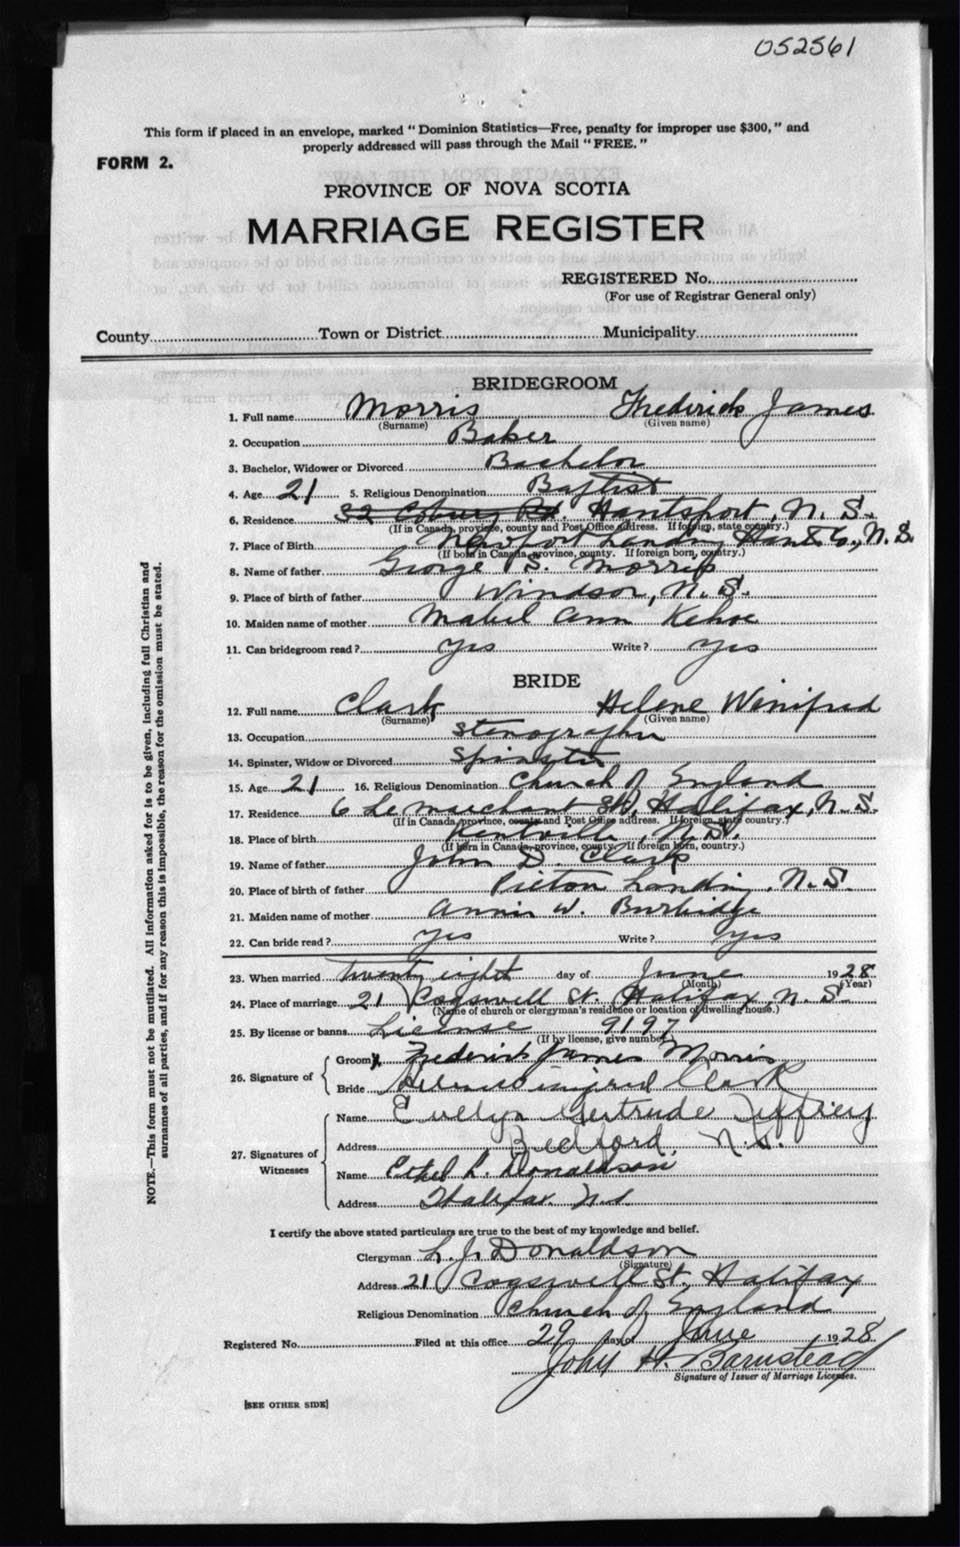 052561
This form if placed in an envelope, marked "Dominion Statistics—Free, penalty for improper use $300," and
properly addressed will pass through the Mail "FREE."
FORM 2.
PROVINCE OF NOVA SCOTIA
MARRIAGE REGISTER
REGISTERED No.
(For use of Registrar General only)
County Town or District Municipality
BRIDEGROOM
1. Full name Morris Frederick James
(Surname) (Given name)
2. Occupation Baker
3. Bachelor, Widower or Divorced Bachelor
4. Age 21 5. Religious Denomination Baptist
6. Residence 32 Coburg Rd. Hantsport, N. S.
(If in Canada, province, county and Post Office address. If foreign, state country.)
7. Place of Birth Newport Landing Hants Co., N. S.
(If born in Canada, province, county. If foreign born, country.)
8. Name of father George S. Morris
9. Place of birth of father Windsor, N. S.
10. Maiden name of mother Mabel Ann Kehoe
11. Can bridegroom read? yes Write? yes
BRIDE
12. Full name Clark Helene Winifred
(Surname) (Given name)
13. Occupation Stenographer
14. Spinster, Widow or Divorced Spinster
15. Age 21 16. Religious Denomination Church of England
17. Residence 6 Le Marchant St, Halifax, N. S.
(If in Canada, province, county and Post Office address. If foreign, state country.)
18. Place of birth Kentville, N. S.
(If born in Canada, province, county. If foreign born, country.)
19. Name of father John D. Clark
20. Place of birth of father Pictou Landing, N. S.
21. Maiden name of mother Annie W. Burbidge
22. Can bride read? yes Write? yes
23. When married twenty eight day of June 1928
(Month) (Year)
24. Place of marriage 21 Cogswell St. Halifax, N. S.
(Name of church or clergyman's residence or location of dwelling house.)
25. By license or banns License 9197
(If by license, give number)
26. Signature of
Groom X Frederick James Morris
Bride Helene Winifred Clark
27. Signatures of Witnesses
Name Evelyn Gertrude Jeffrey
Address Bedford, N. S.
Name Ethel L. Donaldson
Address Halifax N.S.
I certify the above stated particulars are true to the best of my knowledge and belief.
Clergyman L. J. Donaldson
(Signature)
Address 21 Cogswell St., Halifax
Religious Denomination Church of England
Registered No. Filed at this office 29 day of June 1928
John H. Barnstead
Signature of Issuer of Marriage Licenses.
[SEE OTHER SIDE]
NOTE.—This form must not be mutilated. All information asked for is to be given, including full Christian and
surnames of all parties, and if for any reason this is impossible, the reason for the omission must be stated.